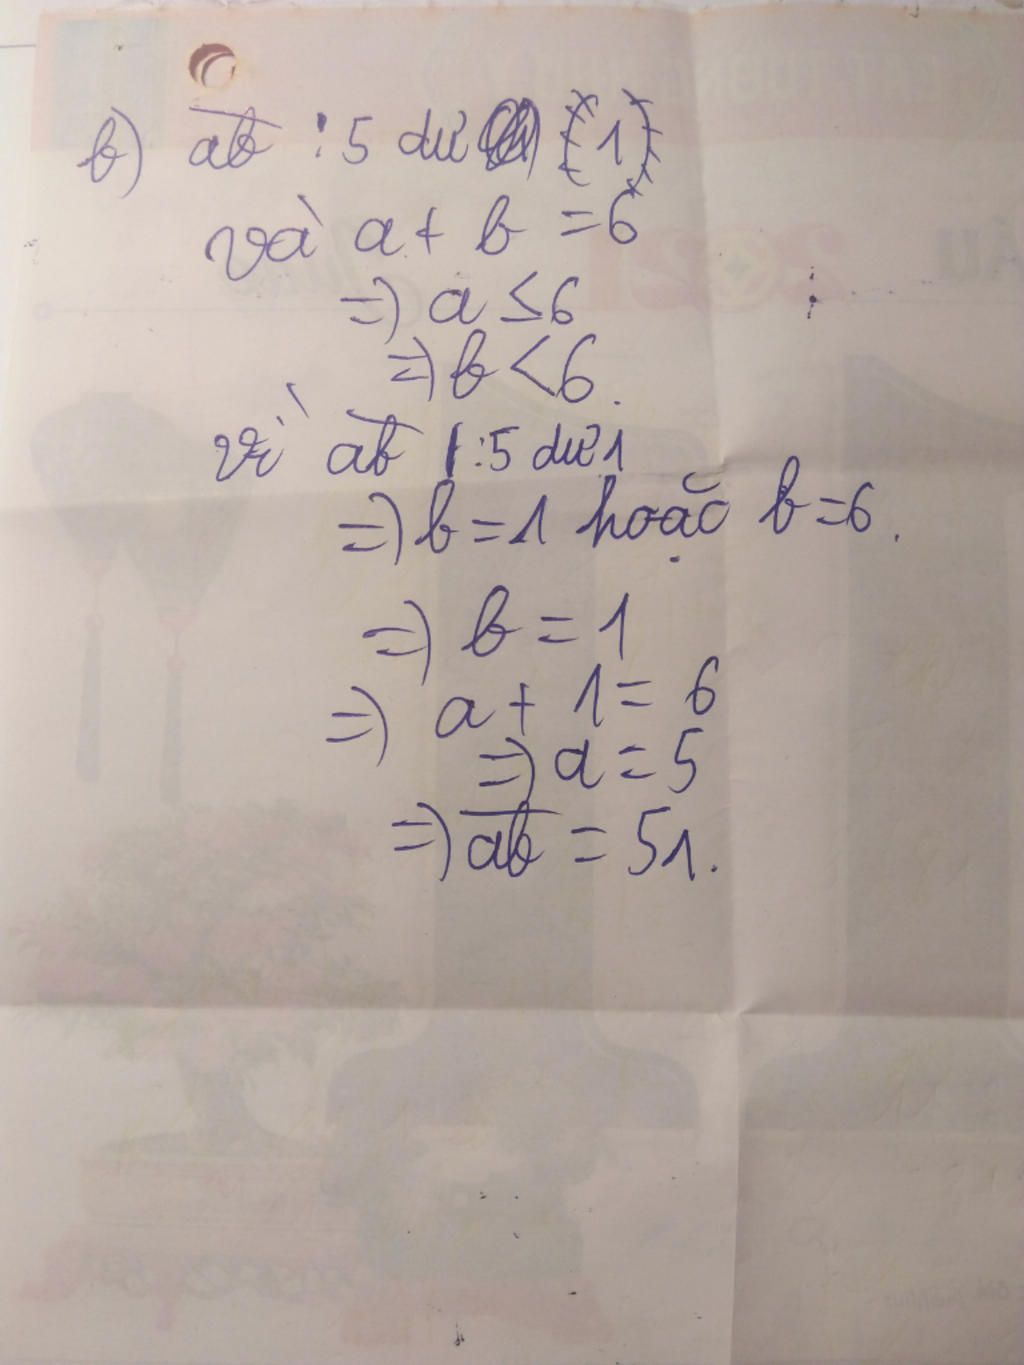 b) ab̅ : 5 dư (1)
và a + b = 6
=) a ≤ 6
=) b < 6.
vì ab̅ : 5 dư 1
=) b = 1 hoặc b = 6.
=) b = 1
=) a + 1 = 6
=) a = 5
=) ab̅ = 51.